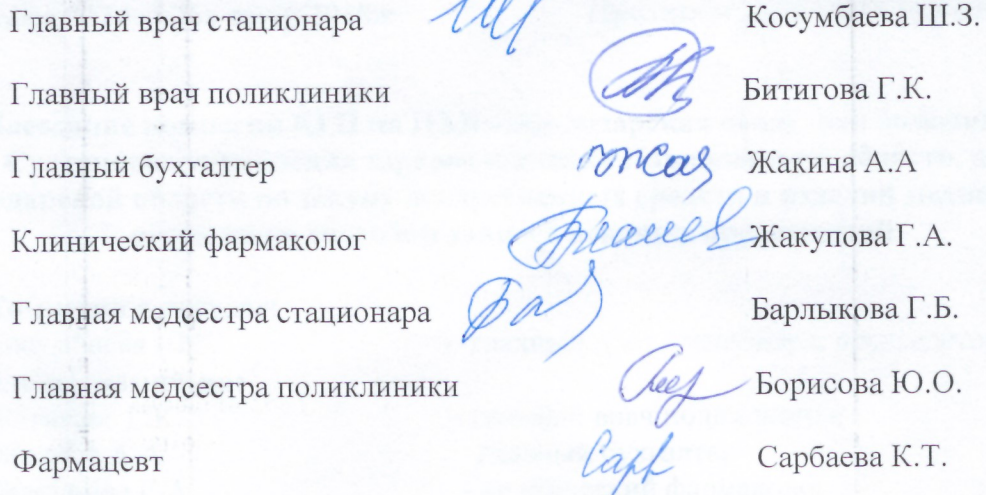 Главный врач стационара Косумбаева Ш.З.
Главный врач поликлиники Битигова Г.К.
Главный бухгалтер Жакина А.А
Клинический фармаколог Жакупова Г.А.
Главная медсестра стационара Барлыкова Г.Б.
Главная медсестра поликлиники Борисова Ю.О.
Фармацевт Сарбаева К.Т.